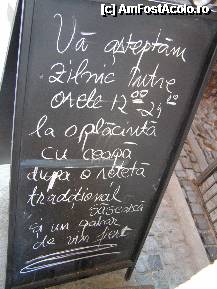 (c) AmFostAcolo.ro
Vă așteptăm
zilnic între
orele 12⁰⁰-24⁰⁰
la o plăcintă
cu ceapă
după o rețetă
tradițional
săsească
și un pahar
de vin fiert